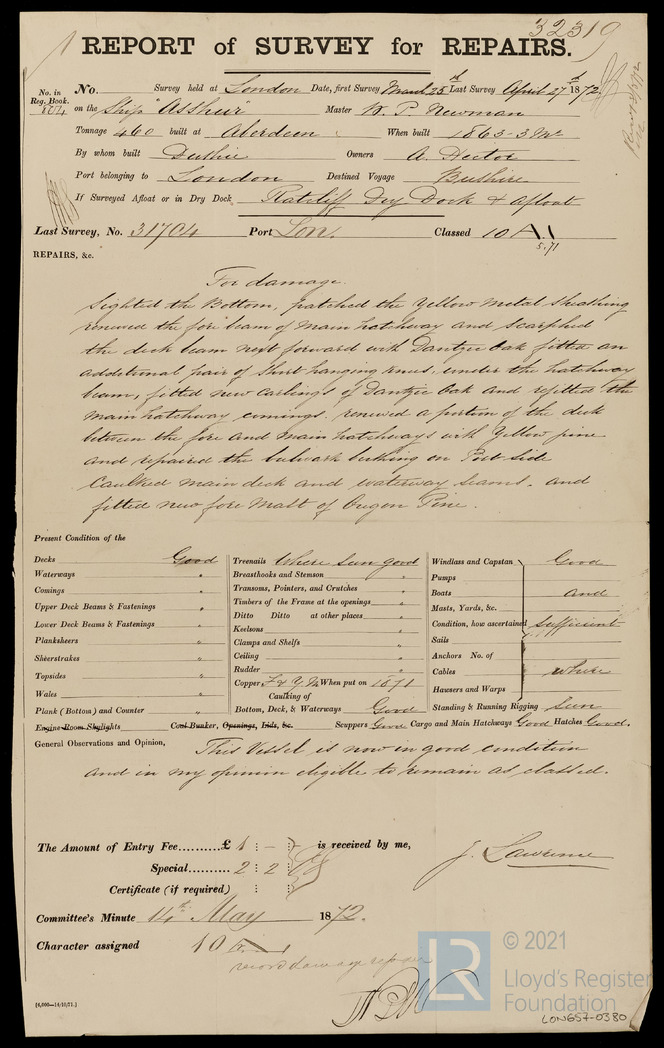 32319
REPORT of SURVEY for REPAIRS.
No. in Reg. Book. No. Survey held at London Date, first Survey March 25th Last Survey April 27th 1872
on the Ship "Asshur" Master W. P. Newman
Tonnage 460 built at Aberdeen When built 1865-3 Mo
By whom built Duthie Owners A. Hector
Port belonging to London Destined Voyage Bushire
If Surveyed Afloat or in Dry Dock Ratcliff Dry Dock & afloat
Last Survey, No. 31704 Port Lon. Classed 10 A1
5.71
REPAIRS, &c.
For damage.
Sighted the Bottom, patched the Yellow Metal Sheathing
renewed the fore beam of Main hatchway and Scarphed
the deck beam next forward with Dantzic Oak fitted an
additional pair of Short hanging knees under the hatchway
beam, fitted new carlings of Dantzic Oak and refitted the
Main hatchway comings. renewed a portion of the deck
between the fore and main hatchways with Yellow pine
and repaired the bulwark birthing on Port Side
Caulked main deck and waterway seams. and
fitted new fore Mast of Oregon Pine.
Present Condition of the
Decks Good
Waterways "
Comings "
Upper Deck Beams & Fastenings "
Lower Deck Beams & Fastenings "
Planksheers "
Sheerstrakes "
Topsides "
Wales "
Plank (Bottom) and Counter "
Treenails Where seen good
Breasthooks and Stemson "
Transoms, Pointers, and Crutches "
Timbers of the Frame at the openings "
Ditto Ditto at other places "
Keelsons "
Clamps and Shelfs "
Ceiling "
Rudder "
Copper F & Y.M When put on 1871
Caulking of
Bottom, Deck, & Waterways Good
Windlass and Capstan Good
Pumps
Boats and
Masts, Yards, &c.
Condition, how ascertained sufficient
Sails
Anchors No. of
Cables where
Hawsers and Warps
Standing & Running Rigging seen
Engine Room Skylights Coal Bunker, Openings, Lids, &c. Scuppers Good Cargo and Main Hatchways Good Hatches Good.
General Observations and Opinion, This Vessel is now in good condition
and in my opinion eligible to remain as classed.
The Amount of Entry Fee..........£ 1 : — : is received by me,
Special.......... 2 : 2 :
J. Lawrence
Certificate (if required) : :
Committee's Minute 14th May 1872.
Character assigned 10
record damage repairs
[6,000—14/10/71.]
LR
© 2021
Lloyd's Register
Foundation
LON657-0380